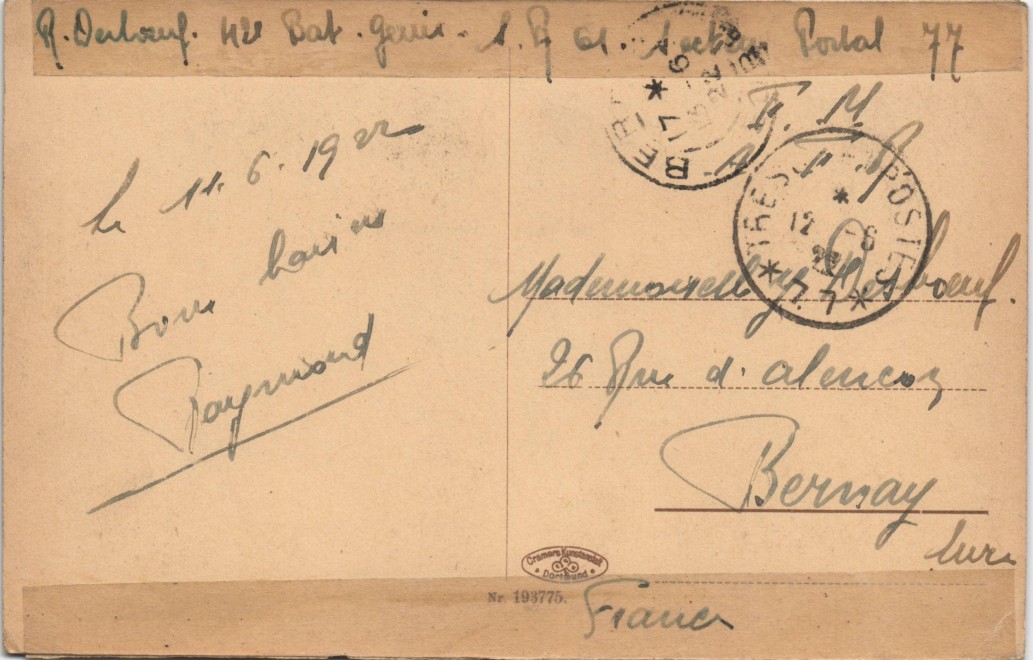 R. Desboeuf. 42e Bat. Genie. S. P. 61. Secteur Postal 77
F. M.
A. F. R.
Le 11. 6. 1922
Bons baisers
Raymond
BER
17 *
22
TRESOR ET POSTES
*
12 -6
22
* 77 *
Mademoiselle Desboeuf.
26 Rue d'alencon
Bernay
Eure
France
Cramers Kunstanstalt
Dortmund
Nr. 193775.